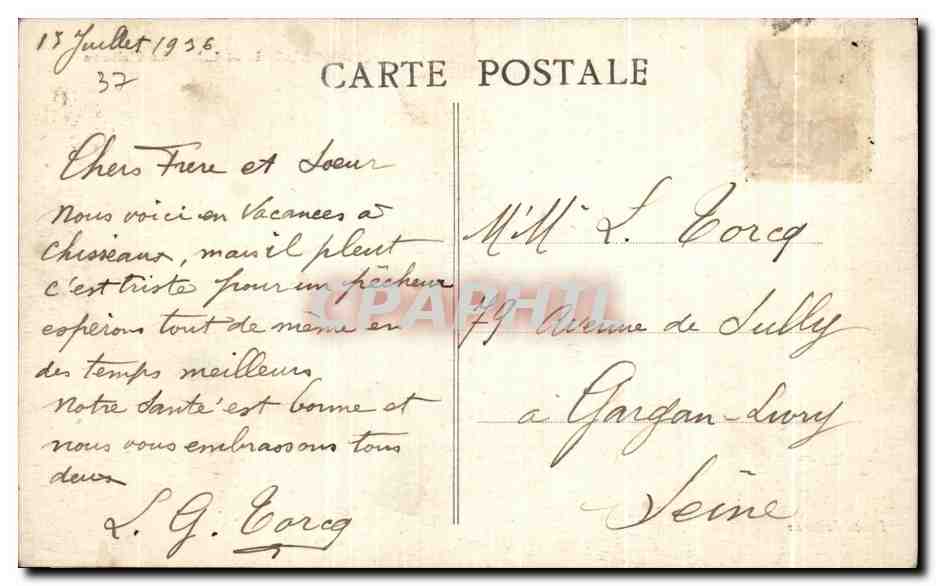 15 Juillet 1936.
37
CARTE POSTALE
Chers Frere et Soeur
Nous voici en Vacances à
Chisseaux, mais il pleut
c'est triste pour un pêcheur
espérons tout de même en
des temps meilleurs
Notre Santé est bonne et
nous vous embrassons tous
deux
L. G. Torcq
M'M' L. Torcq
79 Avenue de Sully
à Gargan-Livry
Seine
CPAPHIL